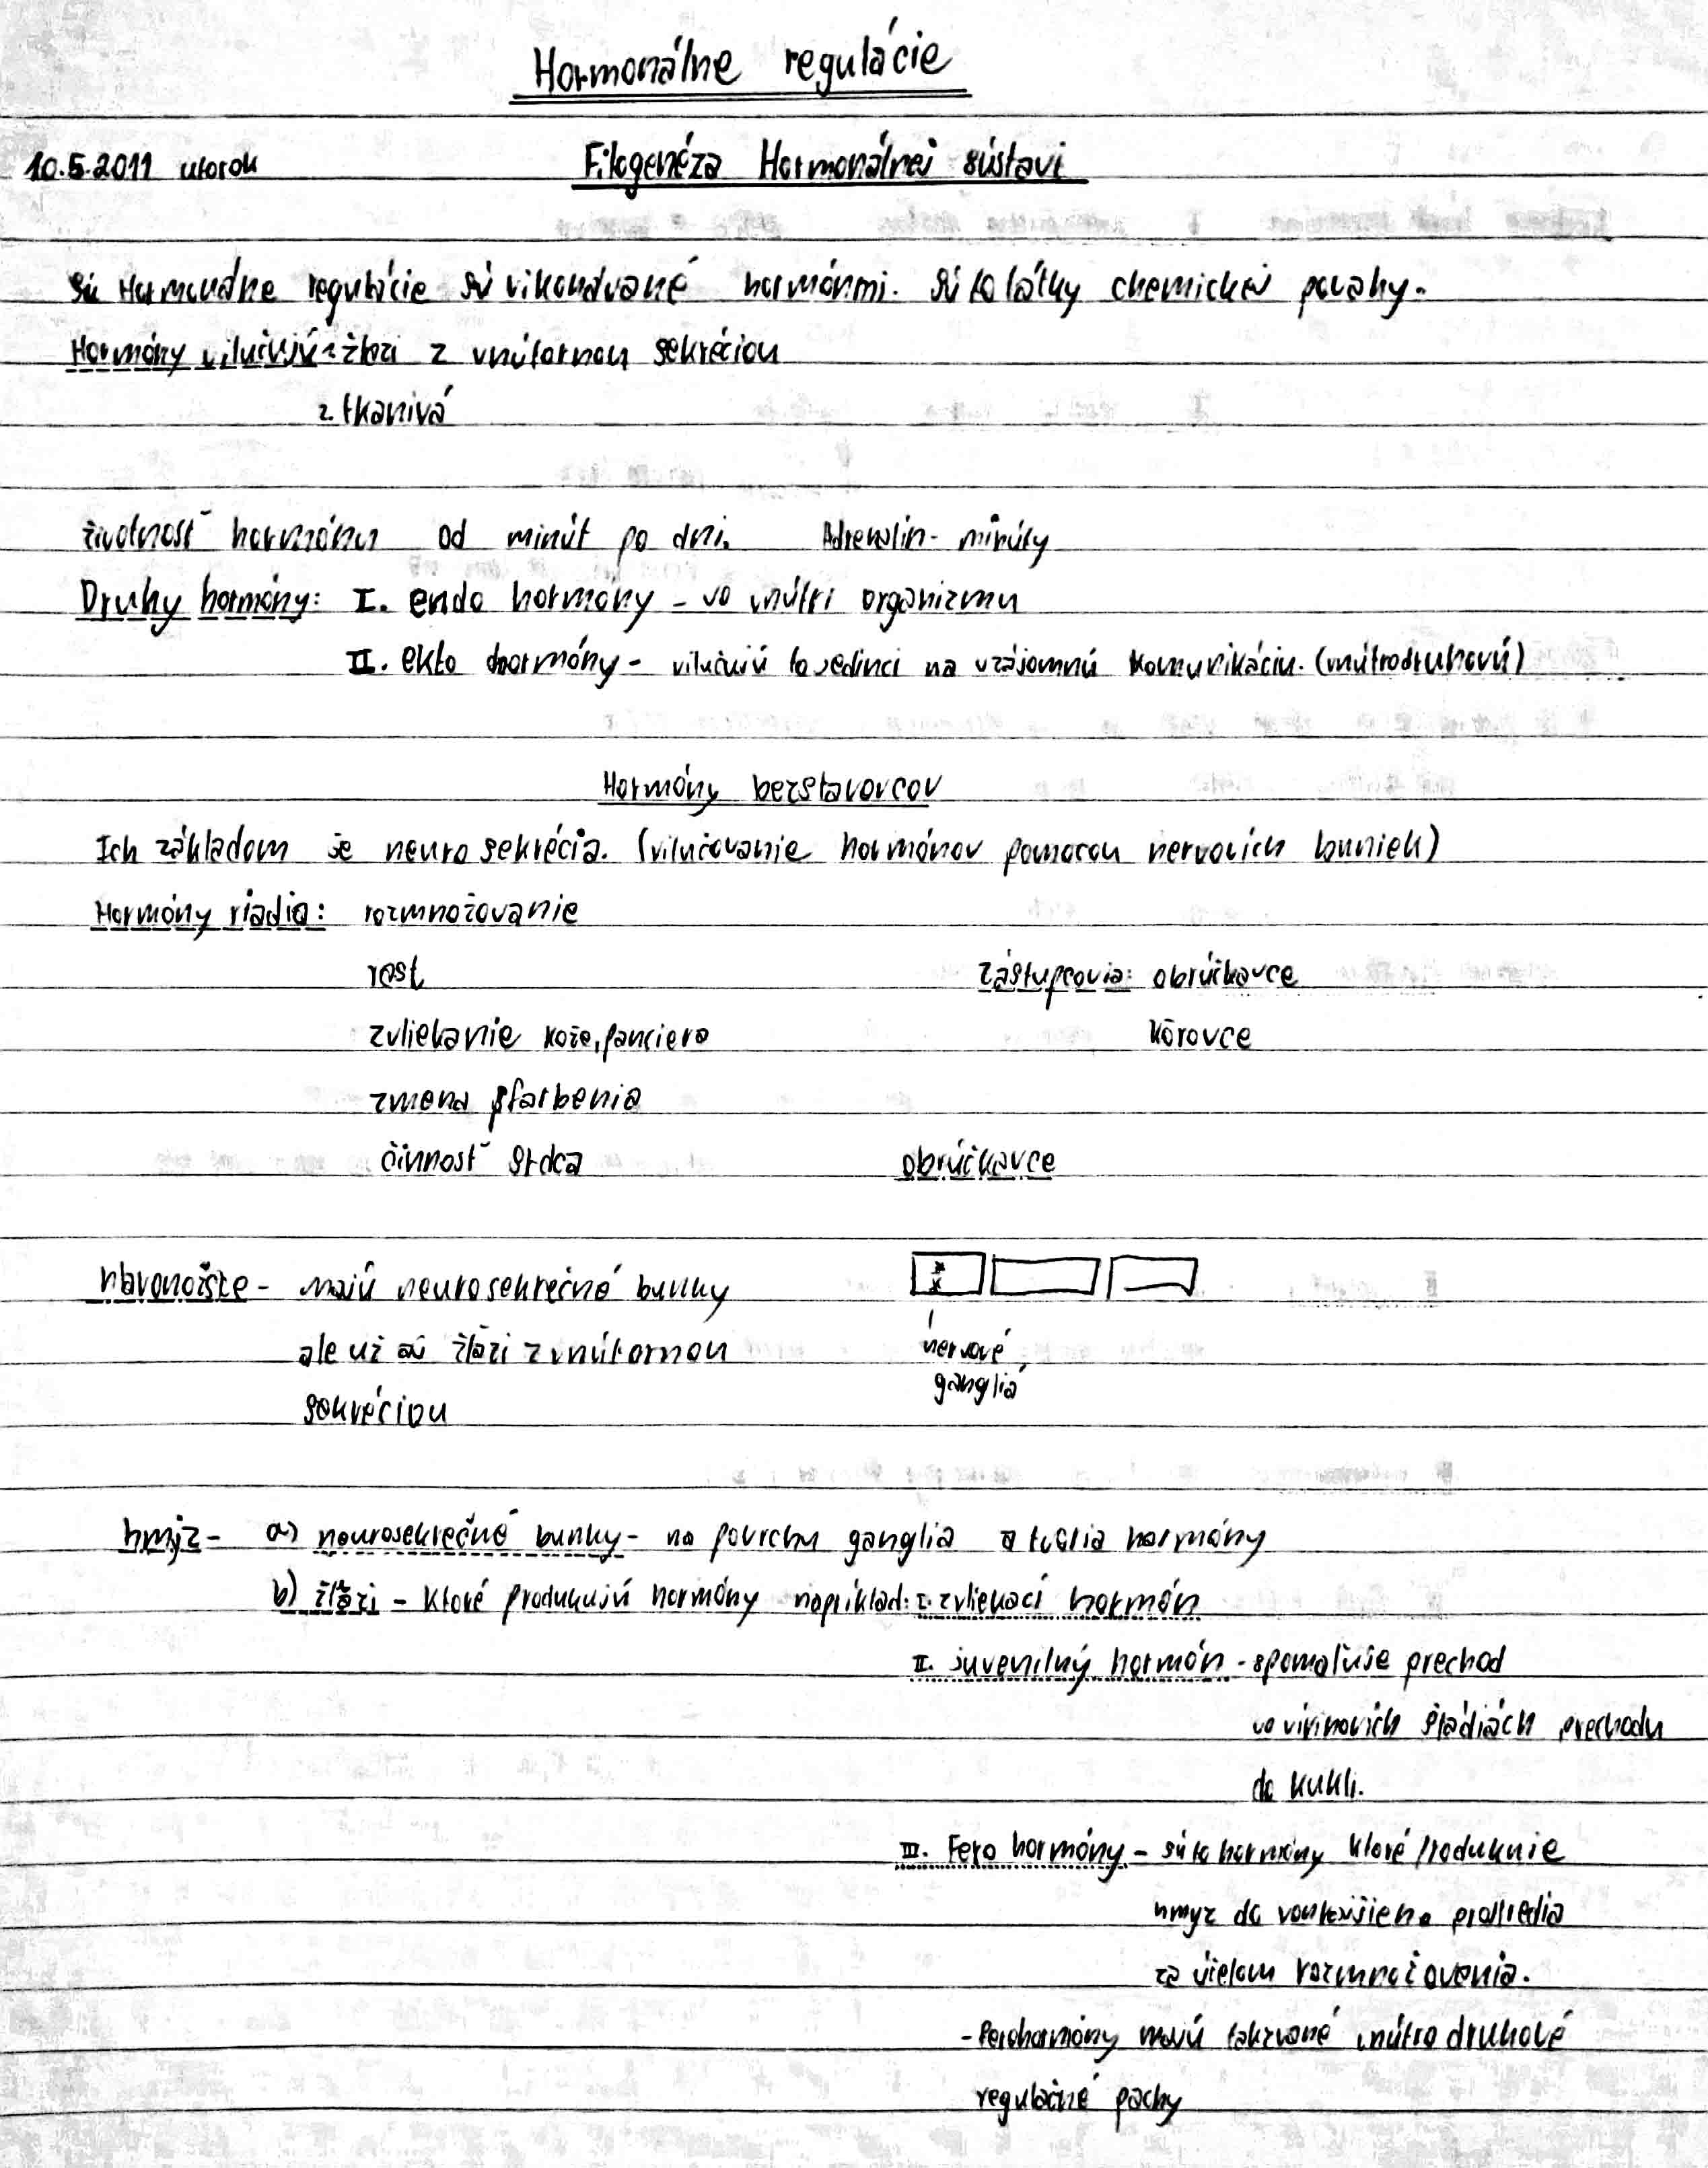 Hormonálne regulácie
10.5.2011 utorok Filogenéza Hormonálnej sústavi
Sú Hormonálne regulácie sú vikonávané hormónmi. Sú to látky chemickej povahy.
Hormóny vilučujú 1 žlazi z vnútornou sekréciou
2. tkanivá
životnosť hormónu od minút po dni. Adrenalín - minúty
Druhy hormóny: I. endo hormóny - vo vnútri organizmu
II. ekto hormóny - vilučujú to jedinci na vzájomnú komunikáciu. (vnútrodruhovú)
Hormóny bezstavovcov
Ich základom je neuro sekrécia. (vilučovanie hormónov pomocou nervovích buniek)
Hormóny riadia: rozmnožovanie
rast zástupcovia: obrúčkavce
zvliekanie kože, panciera kôrovce
zmena sfarbenia
činnosť srdca obrúčkavce
hlavonožce - majú neurosekrečné bunky
ale už aj žlázi z vnútornou
sekréciou
nervové
gangliá
hmyz - a) neurosekrečné bunky - na povrchu ganglia a tvoria hormóny
b) žlázi - ktoré produkujú hormóny napríklad: I. zvliekací hormón
II. juvenilný hormón - spomaľuje prechod
vo vívinovích štádiách prechodu
do kukli.
III. Fero hormóny - sú to hormóny ktoré produkuje
hmyz do vonkajšieho prostredia
za účelom rozmnožovania.
- ferohormóny majú takzvané vnútro druhové
regulačné pachy